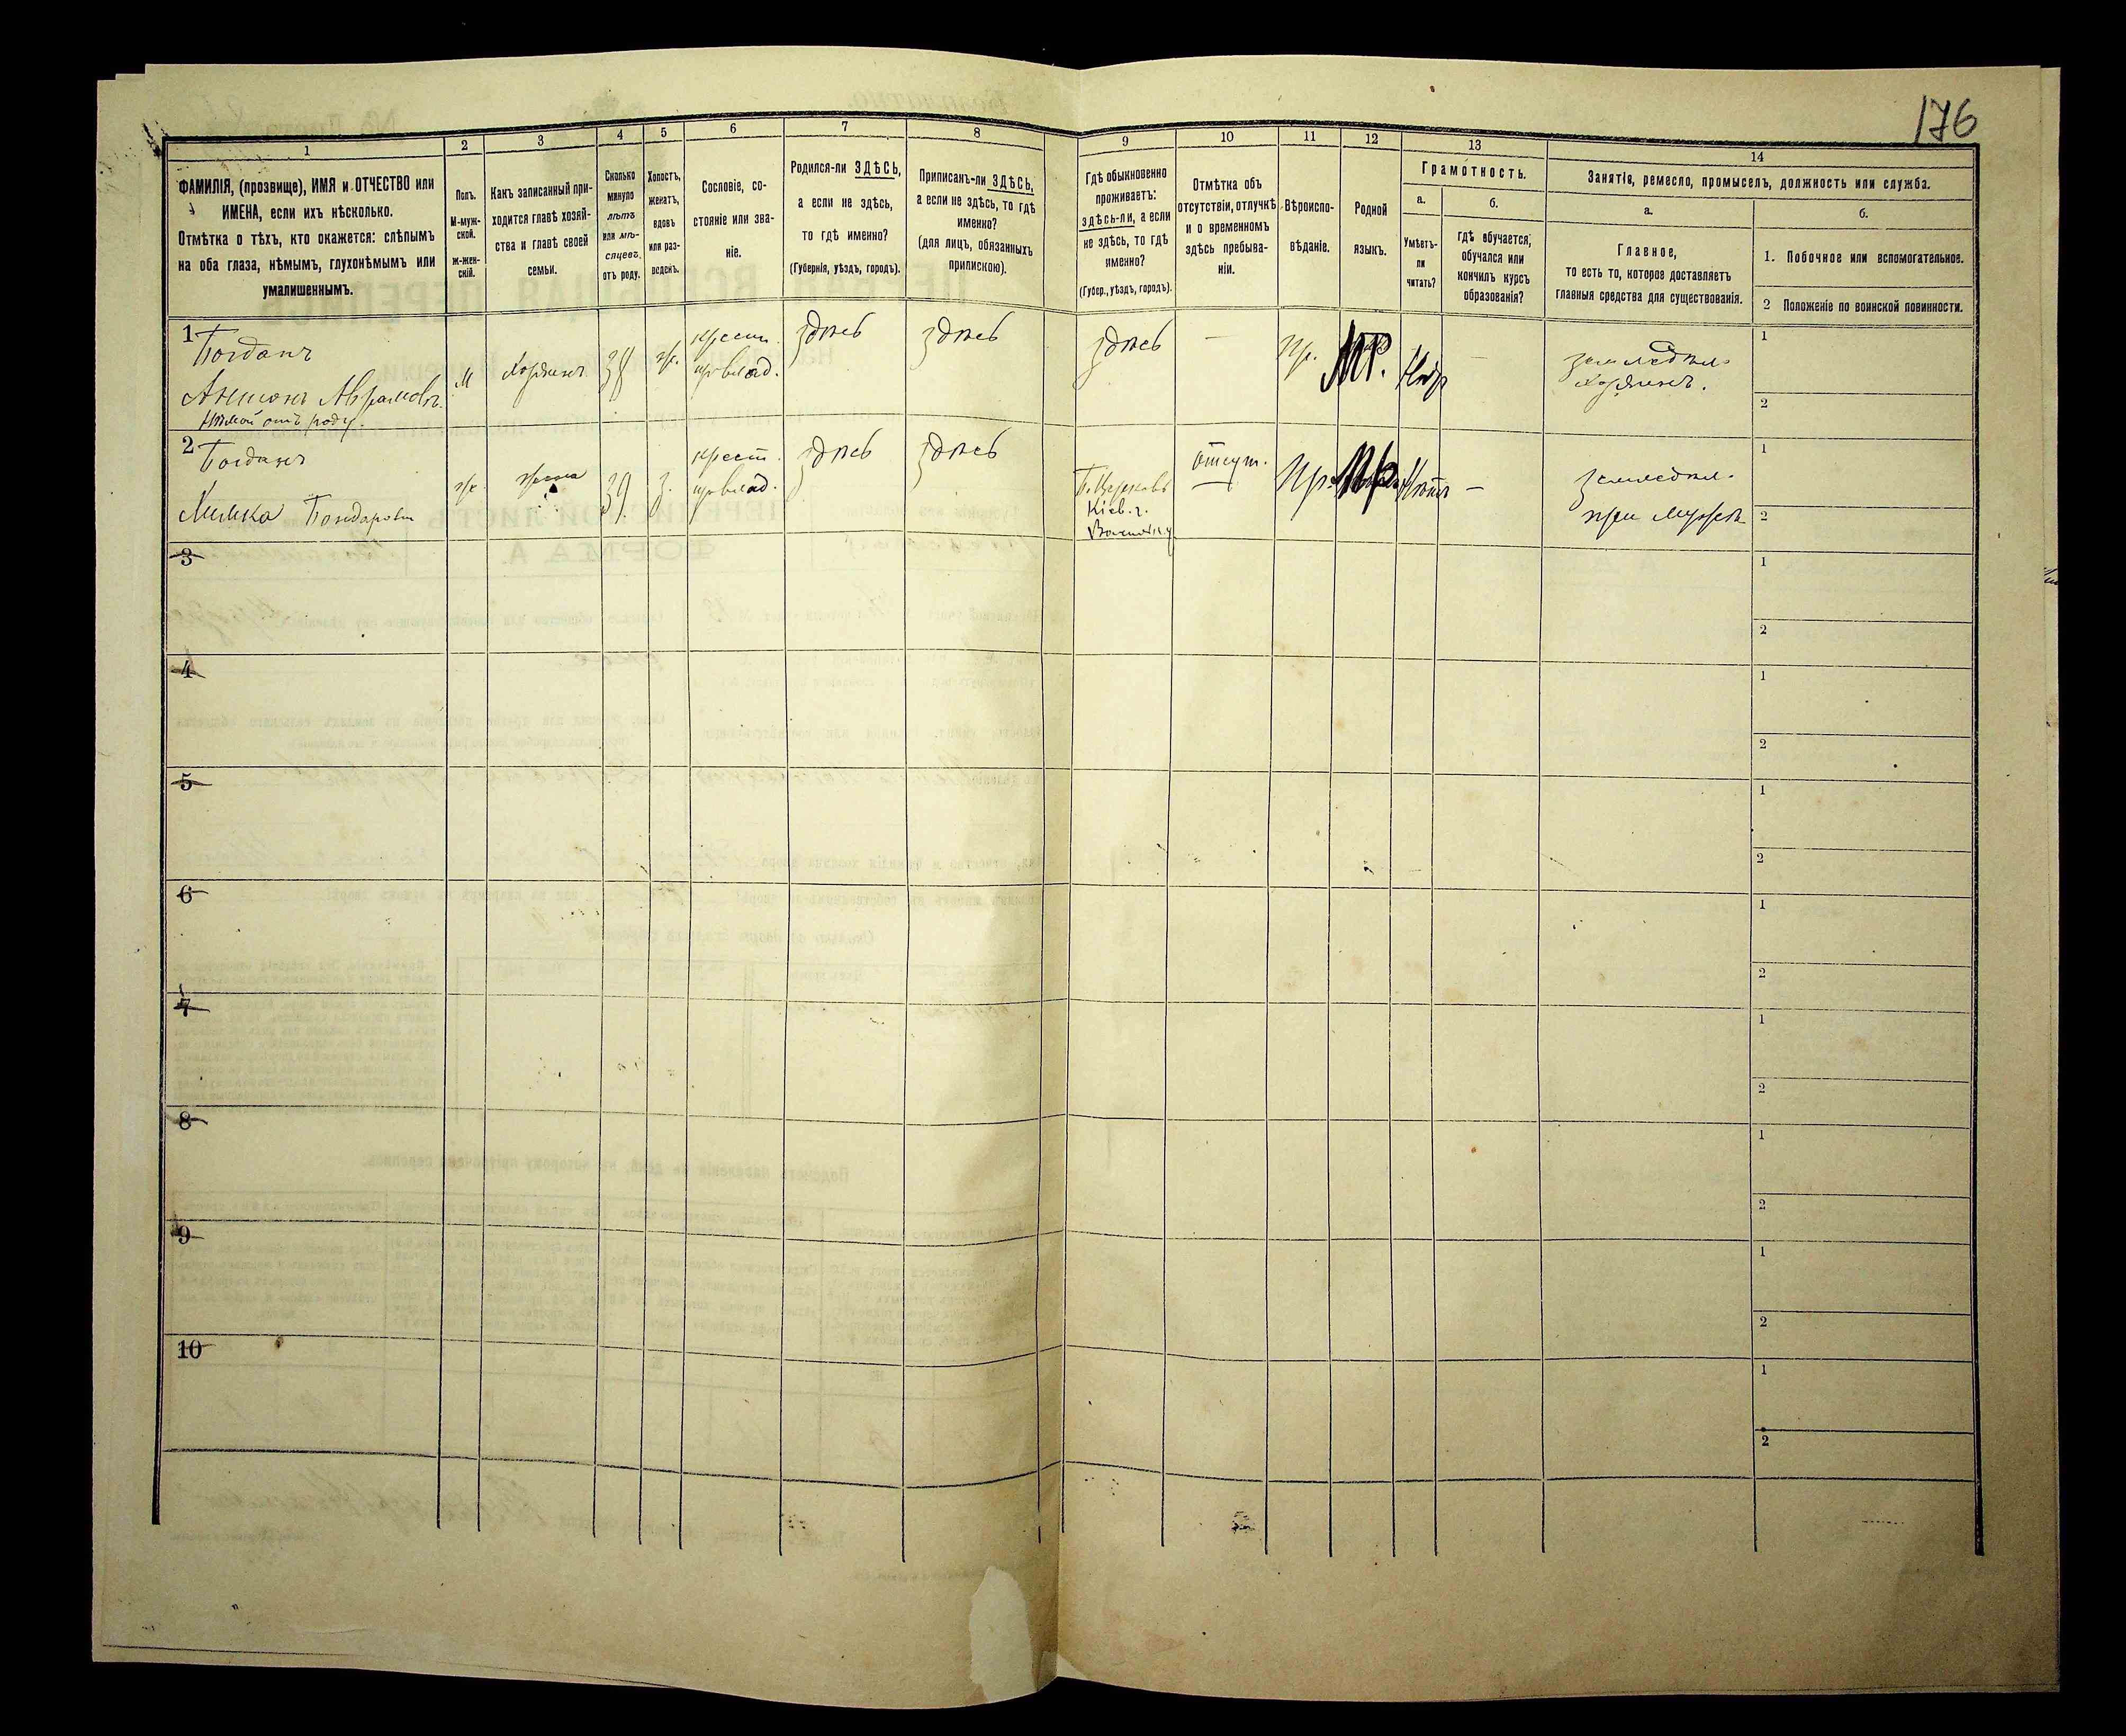 176
1 2 3 4 5 6 7 8 9 10 11 12 13 14
ФАМИЛІЯ, (прозвище), ИМЯ и ОТЧЕСТВО или
ИМЕНА, если ихъ нѣсколько.
Отмѣтка о тѣхъ, кто окажется: слѣпымъ
на оба глаза, нѣмымъ, глухонѣмымъ или
умалишеннымъ.
Полъ.
М-муж-
ской.
Ж-жен-
скій.
Какъ записанный при-
ходится главѣ хозяй-
ства и главѣ своей
семьи.
Сколько
минуло
лѣтъ
или мѣ-
сяцевъ
отъ роду.
Холостъ,
женатъ,
вдовъ
или раз-
веденъ.
Сословіе, со-
стояніе или зва-
ніе.
Родился-ли ЗДѢСЬ,
а если не здѣсь,
то гдѣ именно?
(Губернія, уѣздъ, городъ).
Приписанъ-ли ЗДѢСЬ,
а если не здѣсь, то гдѣ
именно?
(для лицъ, обязанныхъ
припискою).
Гдѣ обыкновенно
проживаетъ:
здѣсь-ли, а если
не здѣсь, то гдѣ
именно?
(Губер., уѣздъ, городъ).
Отмѣтка объ
отсутствіи, отлучкѣ
и о временномъ
здѣсь пребыва-
ніи.
Вѣроиспо-
вѣданіе.
Родной
языкъ.
Грамотность.
а.
Умѣетъ-
ли
читать?
б.
гдѣ обучается,
обучался или
кончилъ курсъ
образованія?
Занятія, ремесло, промыселъ, должность или служба.
а.
Главное,
то есть то, которое доставляетъ
главныя средства для существованія.
б.
1. Побочное или вспомогательное.
2 Положеніе по воинской повинности.
1 Богданъ
Антонъ Аврамовъ
Нѣмой отъ роду.
М
Хозяинъ
38
ж.
крест.
здѣсь
здѣсь
здѣсь
—
Пр.
—
земледѣл.
Хозяинъ.
1
2
2 Богданъ
Бондарови
ж.
жена
39
з.
крест.
здѣсь
здѣсь
Б. Церковь
Кіев. г.
отсут.
Пр.
Нѣтъ
—
земледѣл.
при мужѣ
1
2
3
1
2
4
1
2
5
1
2
6
1
2
7
1
2
8
1
2
9
1
2
10
1
2